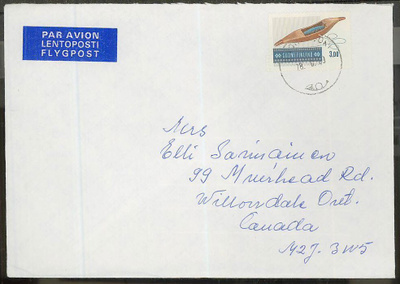 PAR AVION
LENTOPOSTI
FLYGPOST
SUOMI FINLAND
3.00
Mrs
Elli Sarmainen
99 Muirhead Rd.
Willowdale Ont.
Canada
M2J-3W5